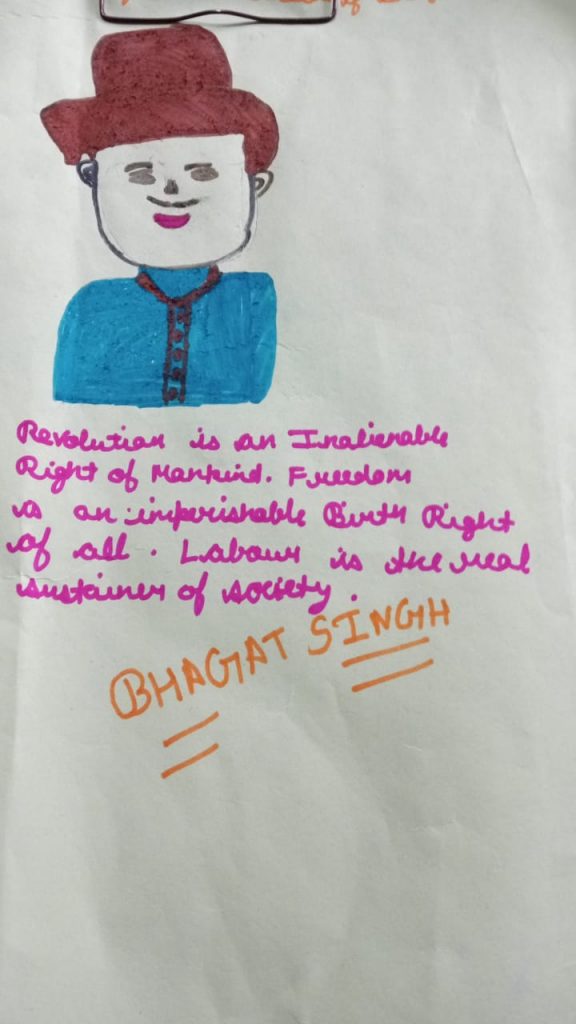 Revolution is an Inalienable
Right of Mankind. Freedom
is an imperishable Birth Right
of all. Labour is the real
sustainer of society.
BHAGAT SINGH